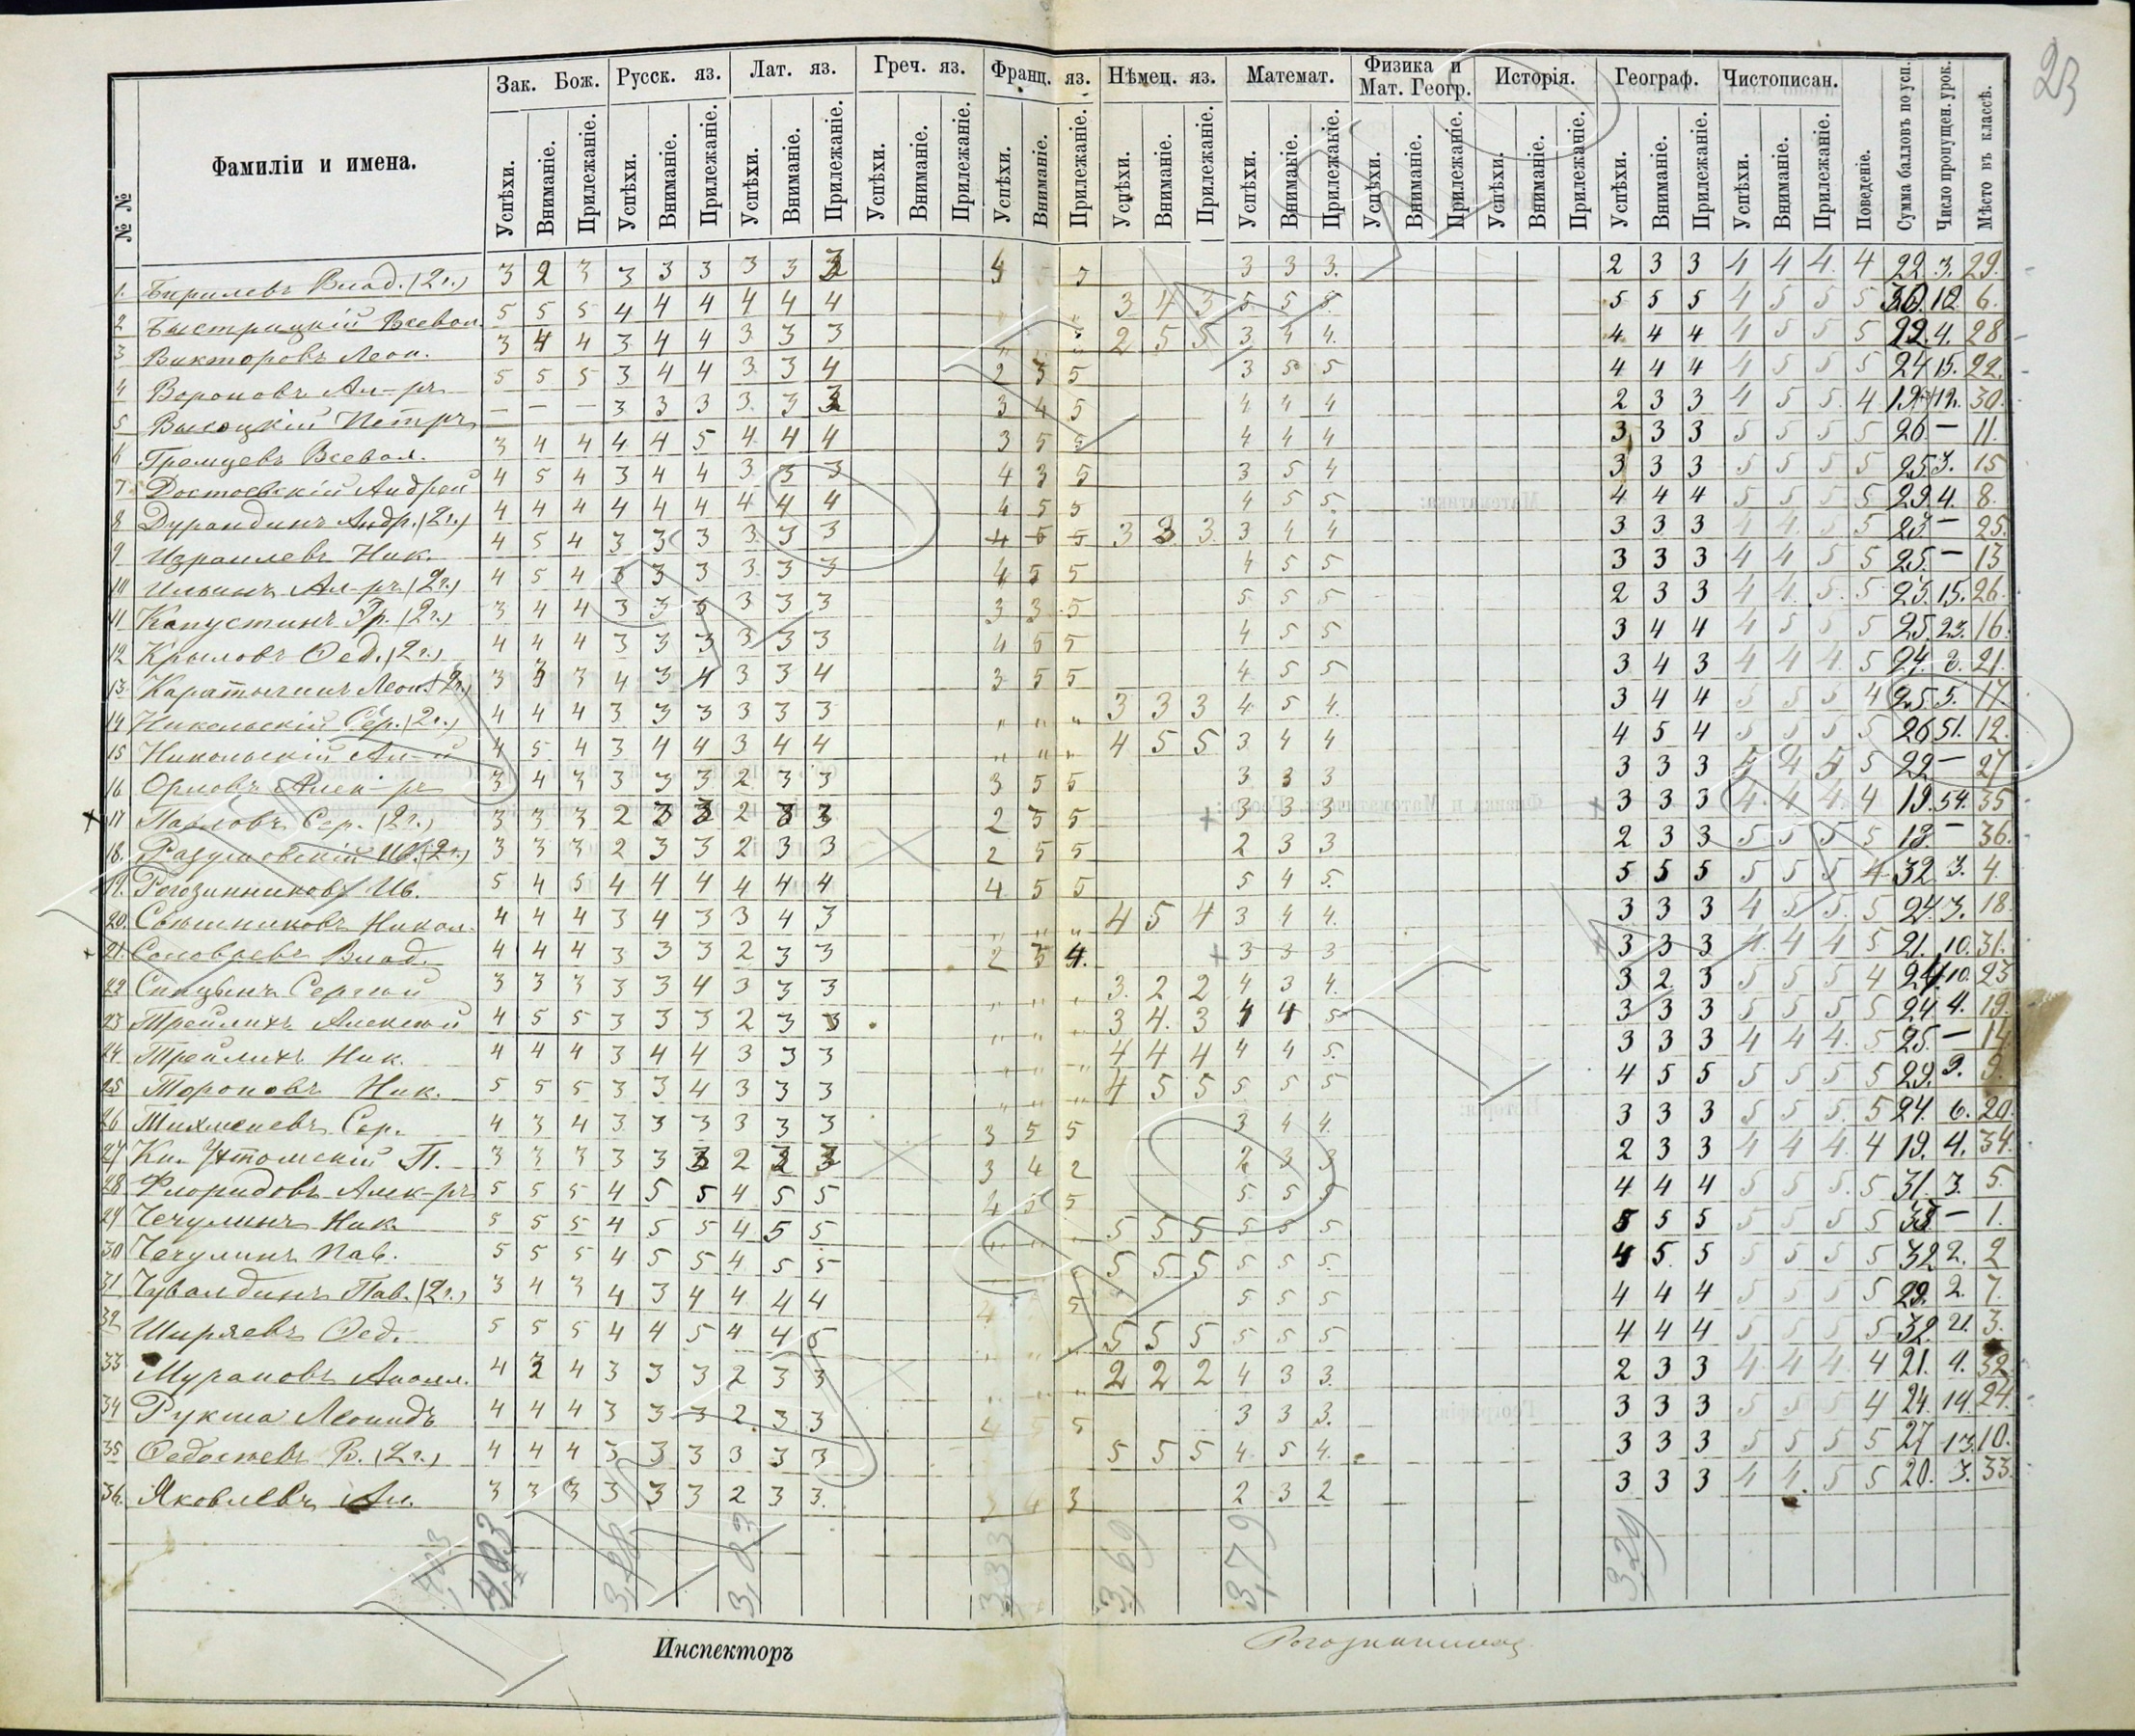 23
№ № Фамиліи и имена. Зак. Бож. Русск. яз. Лат. яз. Греч. яз. Франц. яз. Нѣмец. яз. Математ. Физика и Мат. Геогр. Исторія. Географ. Чистописан. Поведеніе. Сумма балловъ по усп. Число пропущен. урок. Мѣсто въ классѣ.
Успѣхи. Вниманіе. Прилежаніе. Успѣхи. Вниманіе. Прилежаніе. Успѣхи. Вниманіе. Прилежаніе. Успѣхи. Вниманіе. Прилежаніе. Успѣхи. Вниманіе. Прилежаніе. Успѣхи. Вниманіе. Прилежаніе. Успѣхи. Вниманіе. Прилежаніе. Успѣхи. Вниманіе. Прилежаніе. Успѣхи. Вниманіе. Прилежаніе. Успѣхи. Вниманіе. Прилежаніе. Успѣхи. Вниманіе. Прилежаніе.
1. Бирилевъ Влад. (2г.) 3 2 3 3 3 3 3 3 3 3 3. 2 3 3 4 4 4. 4 22. 3. 29.
2 Быстрицкій Всевол. 5 5 5 4 4 4 4 4 4 3 4 3 5 5 5. 5 5 5 4 5 5 5 30. 12. 6.
3 Викторовъ Леон. 3 4 4 3 4 4 3 3 3 2 5 5 3 4 4. 4 4 4 4 5 5 5 22. 4. 28
4 Вороновъ Ал-ръ 5 5 5 3 4 4 3 3 4 2 3 5 3 5 5 4 4 4 4 5 5 5 24 15. 22.
5 Высоцкій Петръ — — — 3 3 3 3. 3 3 3 4 5 4 4 4 2 3 3 4 5 5. 4 30.
6 Громцевъ Всевол. 3 4 4 4 4 5 4 4 4 3 5 5 4 4 4 3 3 3 5 5 5 5 26 — 11.
7 Достоевскій Андрей 4 5 4 3 4 4 3 3 3 4 3 5 3 5 4 3 3 3 5 5 5 5 25. 3. 15
8 Дурандинъ Андр. (2г.) 4 4 4 4 4 4 4 4 4 4 5 5 4 5 5. 4 4 4 5 5 5 5 29. 4. 8.
9 Израилевъ Ник. 4 5 4 3 3 3 3 3 3 4 5 5 3 3 3. 3 4 4 3 3 3 4 4 5 5 23 — 25.
10 Ильинъ Ал-ръ (2г.) 4 5 4 3 3 3 3 3 3 4 5 5 4 5 5 3 3 3 4 4 5 5 25. — 13
11 Капустинъ Гр. (2г.) 3 4 4 3 3 3 3 3 3 3 3 5 5 5 5 2 3 3 4 4 5 5 23. 15. 26.
12 Крыловъ Ѳед. (2г.) 4 4 4 3 3 3 3 3 3 4 5 5 4 5 5 3 4 4 4 5 5 5 25. 23. 16.
13 Каратыгинъ Леон. (2г.) 3 3 3 4 3 4 3 3 4 3 5 5 4 5 5 3 4 3 4 4 4. 5 24. 21.
14 Никольскій Сер. (2г.) 4 4 4 3 3 3 3 3 3 „ „ „ 3 3 3 4 5 4. 3 4 4 5 5 5 4 25 5. 17.
15 Никольскій Ал-й 4 5 4 3 4 4 3 4 4 „ „ „ 4 5 5 3 4 4 4 5 4 5 5 5 5 26 51. 12.
16 Орловъ Алек-ръ 3 4 3 3 3 3 2 3 3 3 5 5 3 3 3 3 3 3 5 22 — 27
17 Павловъ Сер. (2г.) 3 3 3 2 3 3 2 3 3 2 3 5 3 3 3 3 3 3 4. 4 4 4 19. 54. 35
18. Разумовскій Ив. (2г.) 3 3 3 2 3 3 2 3 3 2 5 5 2 3 3 2 3 3 5 5 5 5 18. — 36.
19. Рогозинниковъ Ив. 5 4 5 4 4 4 4 4 4 4 5 5 5 4 5. 5 5 5 5 5 5 4 32 3. 4.
20. Свѣшниковъ Никол. 4 4 4 3 4 3 3 4 3 „ „ „ 4 5 4 3 4 4. 3 3 3 4 5 5. 5 24. 3. 18
21. Соловьевъ Влад. 4 4 4 3 3 3 2 3 3 2 3 4. 3 3 3 3 3 3 4 4 4 5 21. 10. 31.
22 Спицынъ Сергѣй 3 3 3 3 3 4 3 3 3 „ „ „ 3. 2 2 4 3 4. 3 2 3 5 5 5 4 24. 10. 23
23 Трейлихъ Алексѣй 4 5 5 3 3 3 2 3 3 „ „ „ 3 4. 3 4 4 5 3 3 3 5 5 5 5 24 4. 19.
24. Трейлихъ Ник. 4 4 4 3 4 4 3 3 3 „ „ „ 4 4 4 4 4 5. 3 3 3 4 4 4. 5 25. — 14
25 Тороповъ Ник. 5 5 5 3 3 4 3 3 3 „ „ „ 4 5 5 5 5 5 4 5 5 5 5 5 5 29. 9. 9.
26 Тихменевъ Сер. 4 3 4 3 3 3 3 3 3 3 5 5 3 4 4. 3 3 3 5 5 5. 5 24. 6. 20.
27 Кн. Ухтомскій П. 3 3 3 3 3 3 2 3 3 3 4 2 2 3 3 2 3 3 4 4 4. 4 19. 4. 34.
28 Флоридовъ Алек-ръ 5 5 5 4 5 5 4 5 5 4 5 5 5 5 5 4 4 4 5 5 5. 5 31. 3. 5.
29 Чечулинъ Ник. 5 5 5 4 5 5 4 5 5 „ „ „ 5 5 5 5 5 5 5 5 5 5 5 5 5 33 — 1.
30 Чечулинъ Пав. 5 5 5 4 5 5 4 5 5 5 5 5 5 5 5. 4 5 5 5 5 5 5 32 2. 2
31 Чувалдинъ Пав. (2г.) 3 4 3 4 3 4 4 4 4 4 5 5 5 5 4 4 4 5 5 5 5 29. 2. 7.
32 Ширяевъ Ѳед. 5 5 5 4 4 5 4 4 5 „ „ „ 5 5 5 5 5 5 4 4 4 5 5 5 5 32. 21. 3.
33 Мурановъ Аполл. 4 3 4 3 3 3 2 3 3 „ „ „ 2 2 2 4 3 3. 2 3 3 4. 4 4. 4 21. 4. 32
34 Рукша Леонидъ 4 4 4 3 3 3 2 3 3 4 5 5 3 3 3. 3 3 3 5 5 5 4 24. 14. 24.
35 Ѳедосѣевъ В. (2г.) 4 4 4 3 3 3 3 3 3 5 5 5 4. 5 4. 3 3 3 5 5 5 5 27 13. 10.
36. Яковлевъ Ал. 3 3 3 3 3 3 2 3 3. 3 4 3 2 3 2 3 3 3 4 4. 5 5 20. 3. 33.
3,03 3,33 3,69 3,79 3,29
Инспекторъ